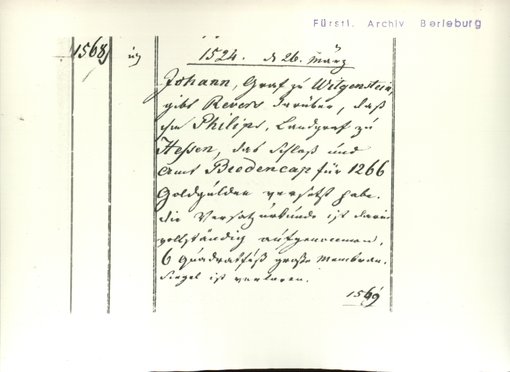 Fürstl. Archiv Berleburg
1568
1524. d 26. März
Johann, Graf zu Witgenstein,
gibt Revers darüber, daß
ihm Philips, Landgraf zu
Hessen, das Schloß und
Amt Biedencap für 1266
Goldgülden versetzt habe.
die Versatzurkunde ist darin
vollständig aufgenommen.
6 Quadratfuß große Membran.
Siegel ist verloren.
1569